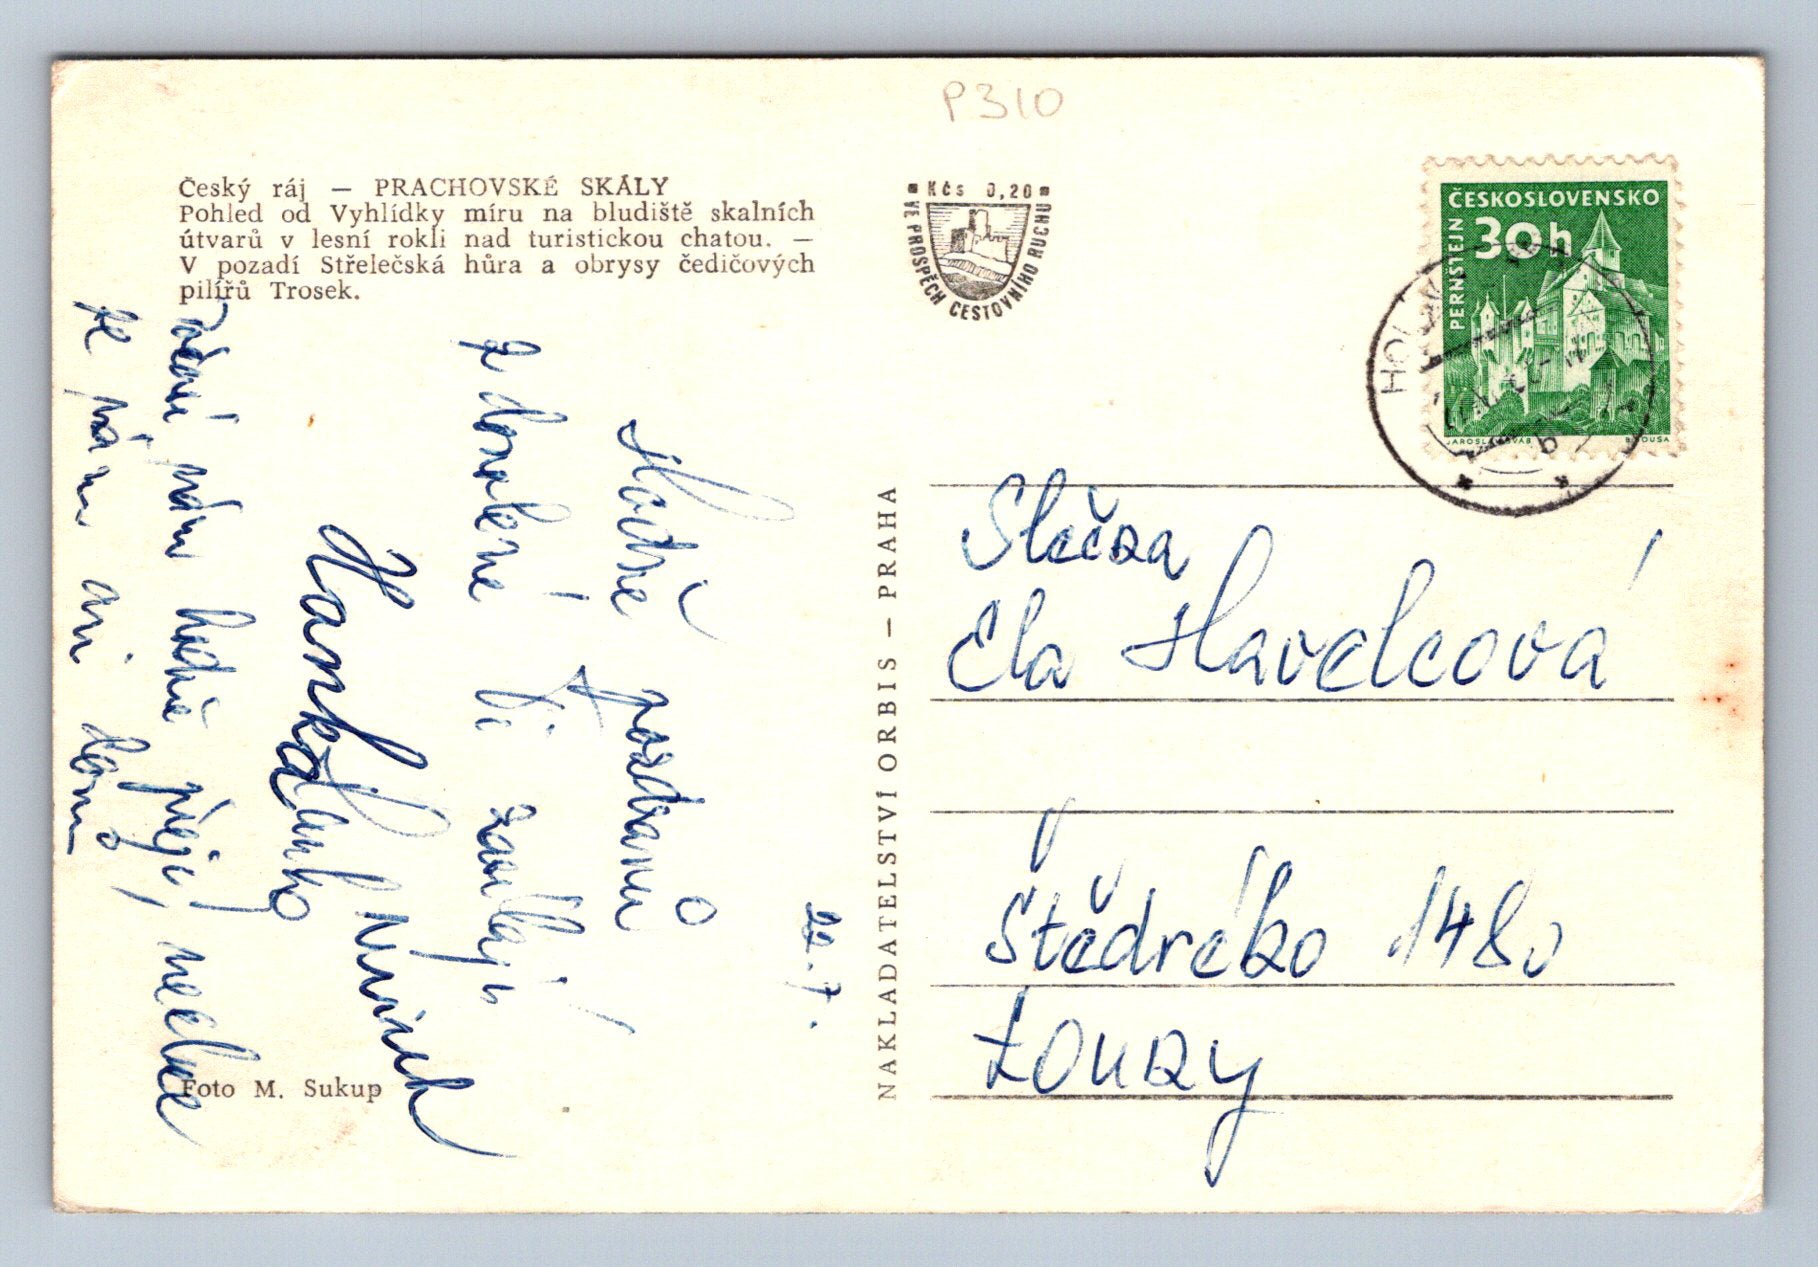 P310
Český ráj — PRACHOVSKÉ SKÁLY
Pohled od Vyhlídky míru na bludiště skalních
útvarů v lesní rokli nad turistickou chatou. —
V pozadí Střelečská hůra a obrysy čedičových
pilířů Trosek.
Kčs 0,20
VE PROSPĚCH CESTOVNÍHO RUCHU
ČESKOSLOVENSKO
30h
PERNŠTEJN
JAROSLAV ŠVÁB
B. HOUSA
22. 7.
Hodně pozdravů
z dovolené Ti zasílají
Hanka
nám hodně přeje, nechce
se nám ani domů
Foto M. Sukup
NAKLADATELSTVÍ ORBIS — PRAHA
Slečna
Ela Havelcová
Štědrého 1480
Louny